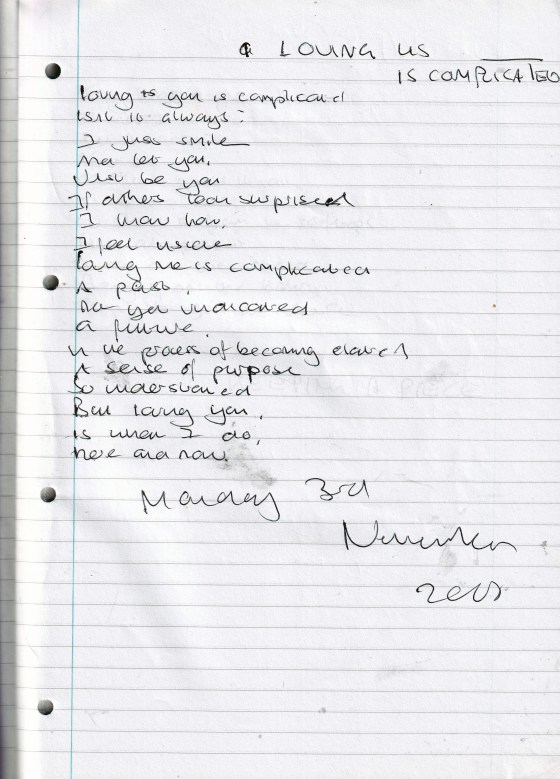 LOVING US
IS COMPLICATED
loving you is complicated
isn't it always:
I just smile
and let you,
Just be you
If others look surprised
I know how,
I feel inside
loving me is complicated
A past,
a future.
in the process of becoming
A sense of purpose
So understated
But loving you,
is what I do,
here and now.
Monday 3rd
November